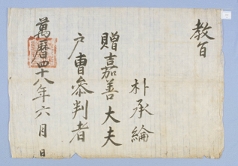 教旨
朴承綸
贈嘉善大夫
戶曹參判者
萬曆四十八年六月 日